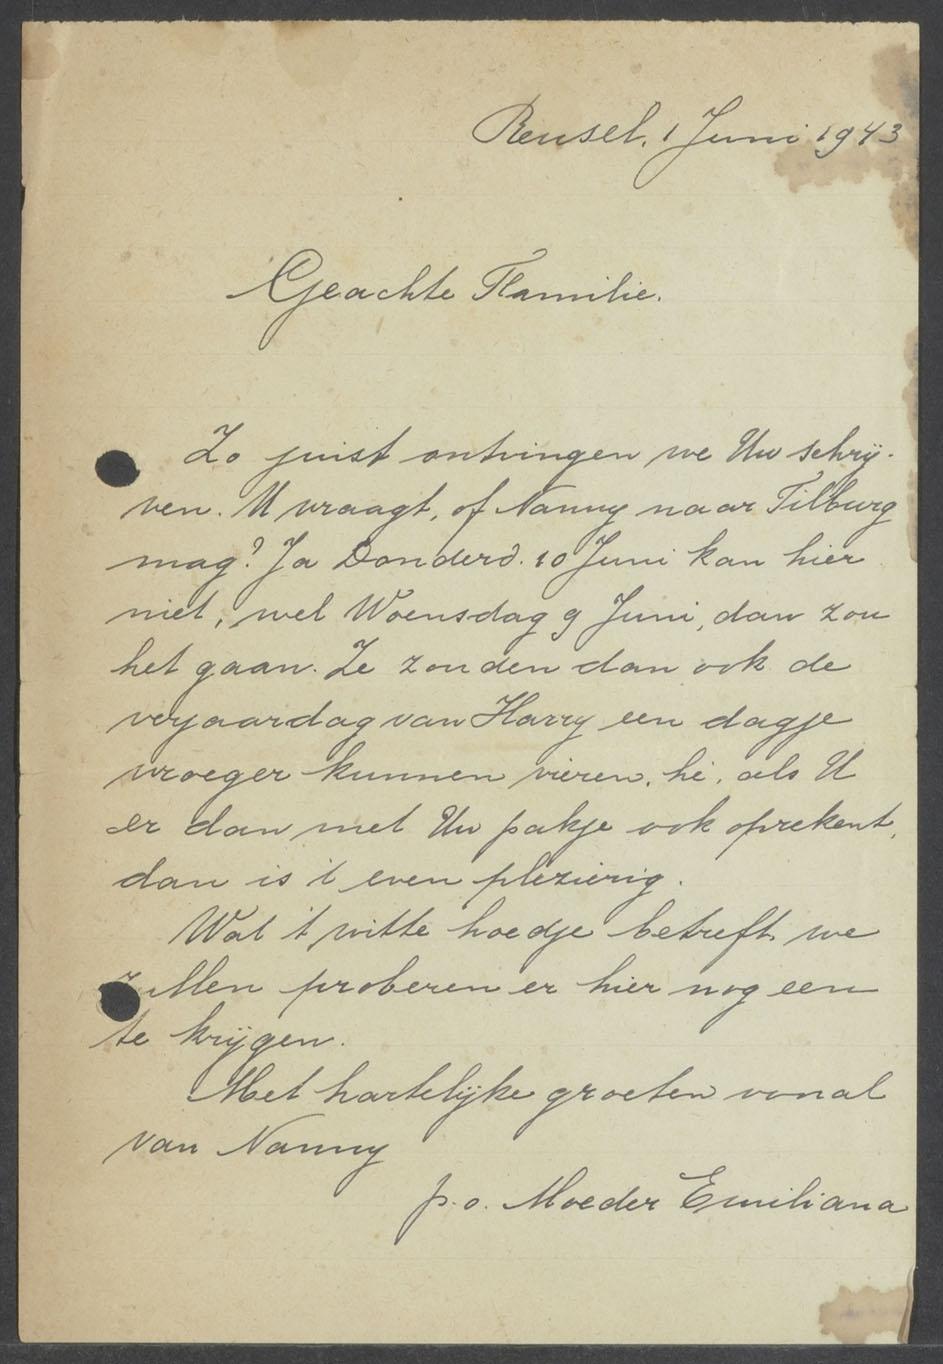 Reusel, 1 Juni 1943
Geachte Familie.
Zo juist ontvingen we Uw schrij-
ven. U vraagt, of Nanny naar Tilburg
mag? Ja Donderd. 10 Juni kan hier
niet, wel Woensdag 9 Juni, dan zou
het gaan. Ze zouden dan ook de
verjaardag van Harry een dagje
vroeger kunnen vieren, hé, als U
er dan met Uw pakje ook oprekent,
dan is 't even plezierig.
Wat 't witte hoedje betreft, we
zullen proberen er hier nog een
te krijgen.
Met hartelijke groeten vooral
van Nanny
p.o. Moeder Emiliana